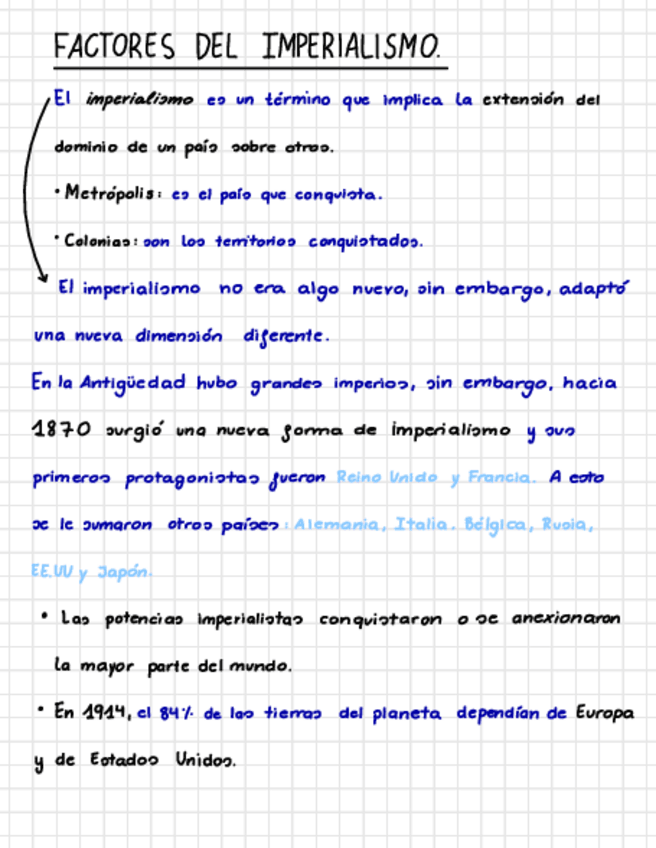 FACTORES DEL IMPERIALISMO.
El imperialismo es un término que implica la extensión del
dominio de un país sobre otros.
· Metrópolis: es el país que conquista.
· Colonias: son los territorios conquistados.
El imperialismo no era algo nuevo, sin embargo, adaptó
una nueva dimensión diferente.
En la Antigüedad hubo grandes imperios, sin embargo, hacia
1870 surgió una nueva forma de imperialismo y sus
primeros protagonistas fueron Reino Unido y Francia. A esto
se le sumaron otros países: Alemania, Italia. Bélgica, Rusia,
EE.UU y Japón.
· Las potencias imperialistas conquistaron o se anexionaron
la mayor parte del mundo.
· En 1914, el 84% de las tierras del planeta dependían de Europa
y de Estados Unidos.